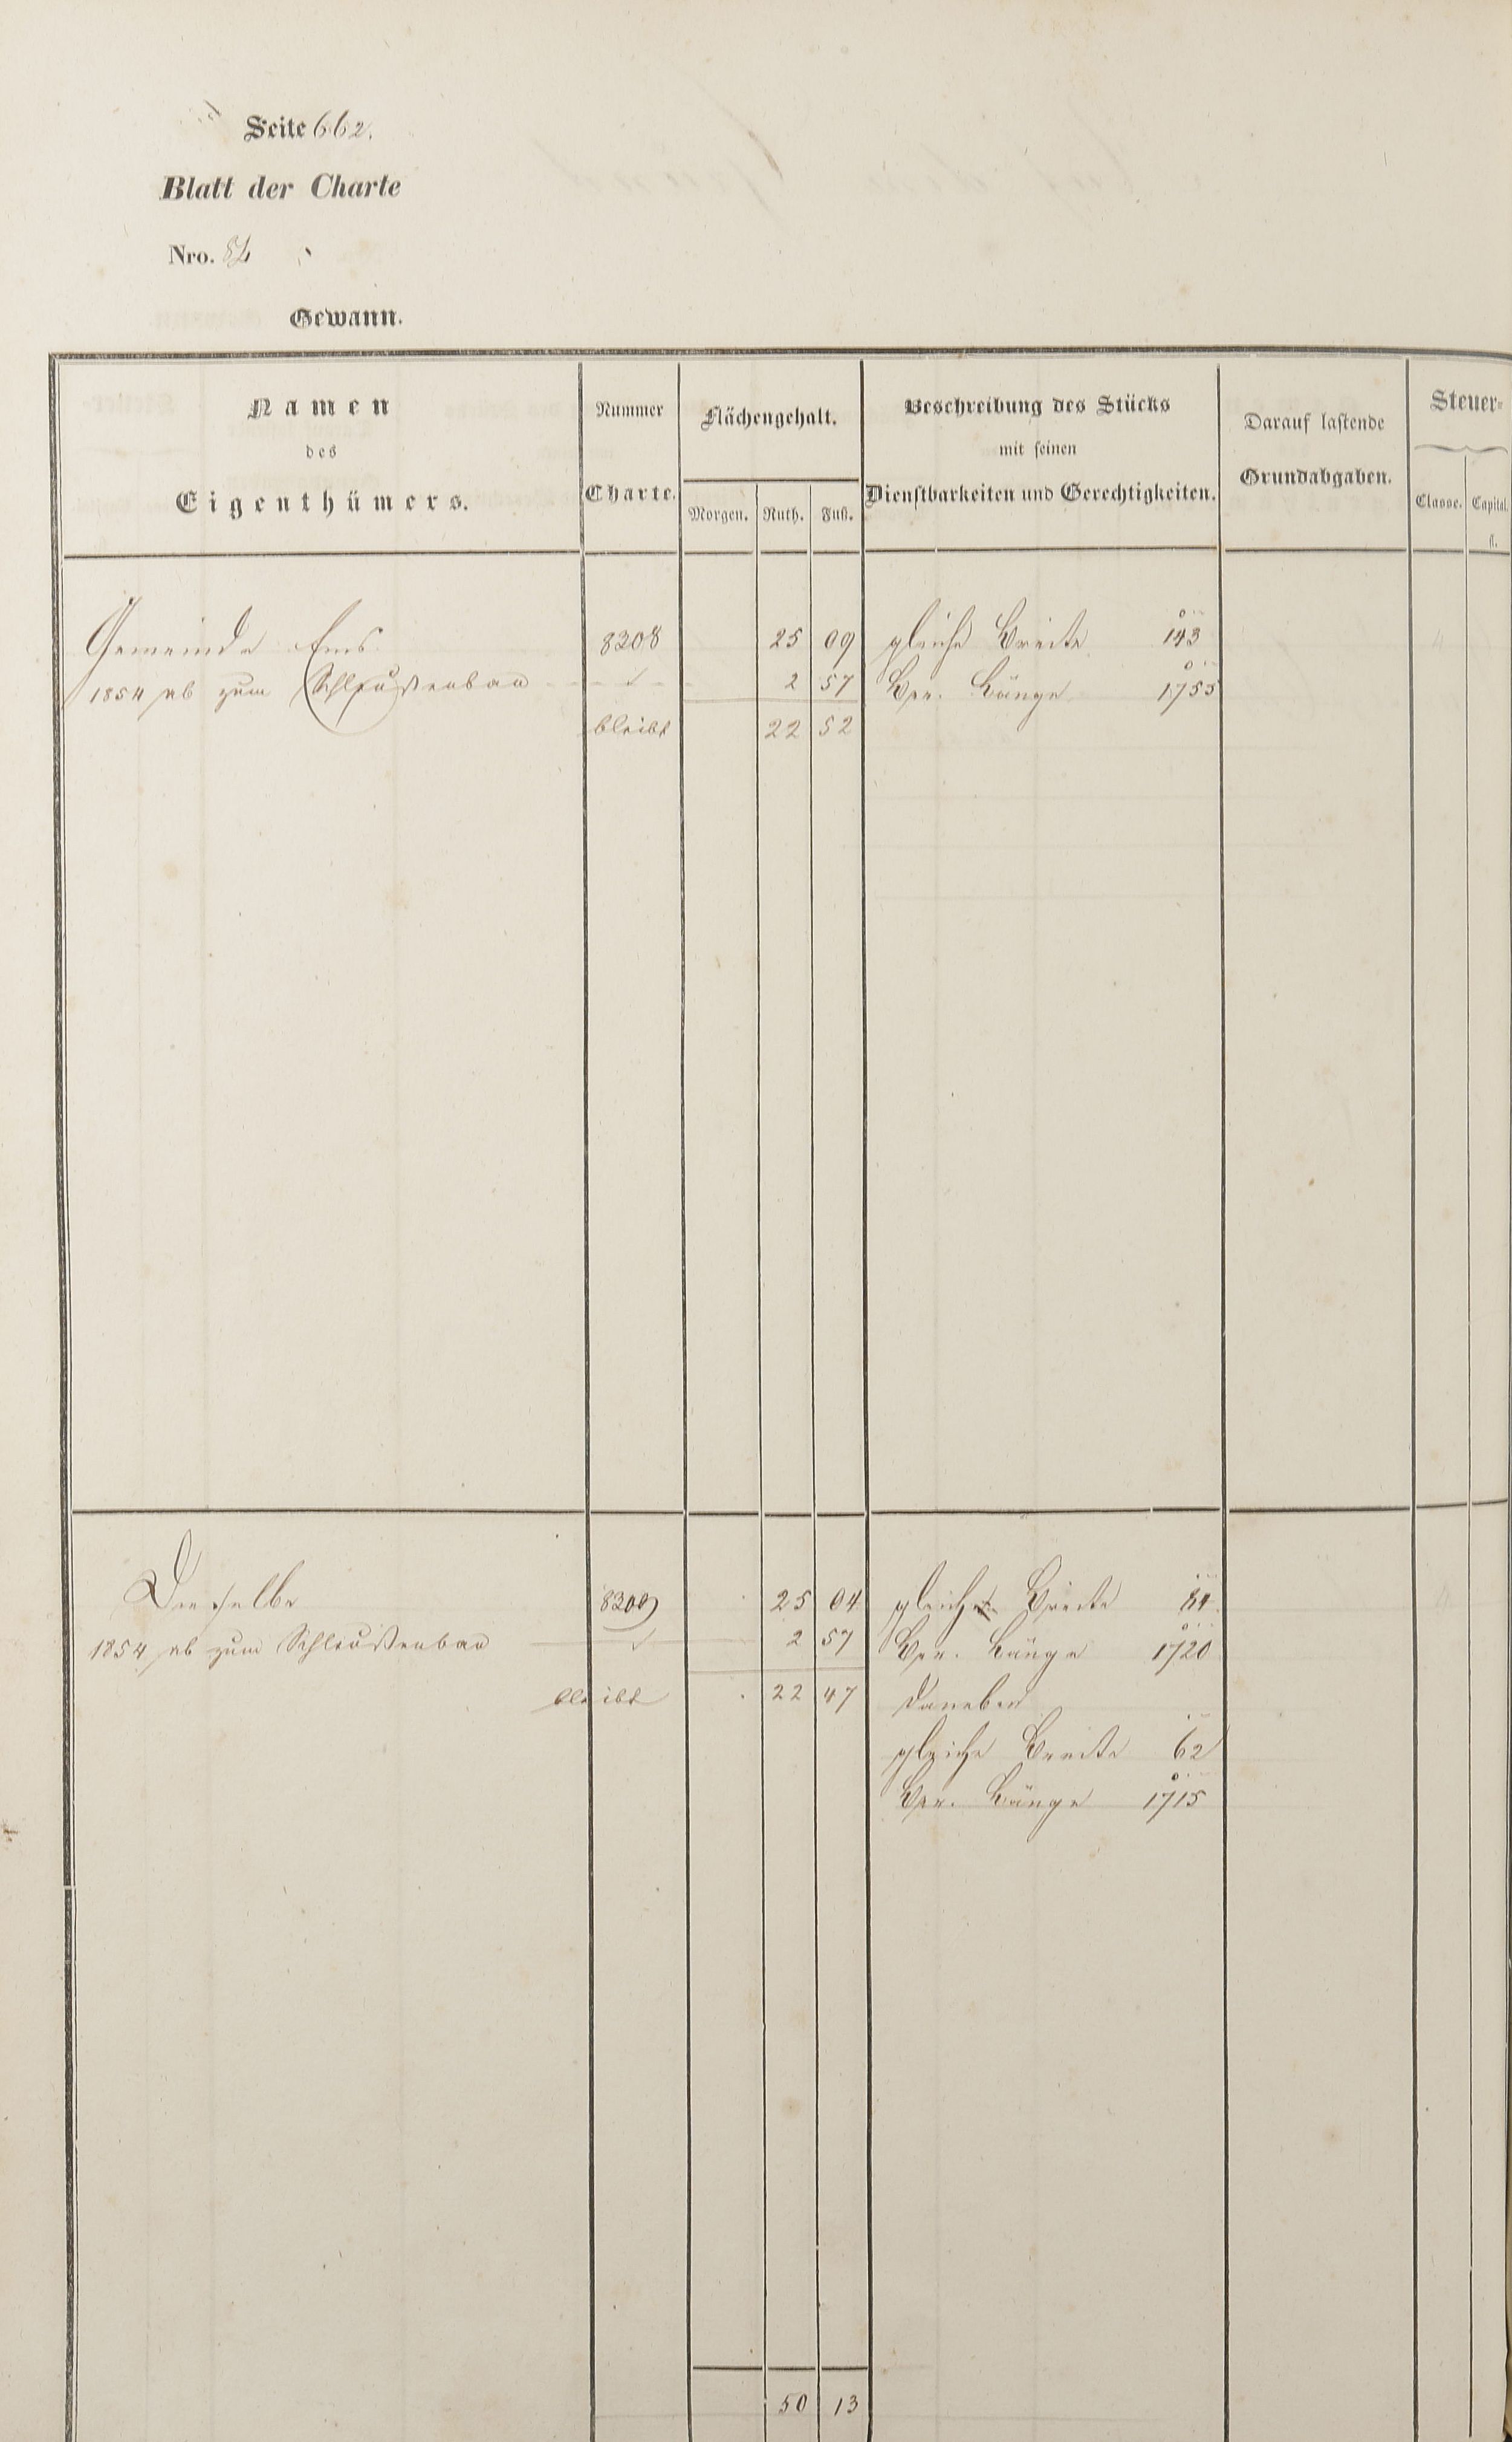 Seite 662.
Blatt der Charte
Nro. 84
Gewann.
Namen des Eigenthümers. Nummer Charte. Flächengehalt. Morgen. Ruth. Fuß. Beschreibung des Stücks mit seinen Dienstbarkeiten und Gerechtigkeiten. Darauf lastende Grundabgaben. Steuer- Classe. Capital. fl.
Gemeinde Ems 8308 25 09 gleiche Breite 143
1854 ab zum Schleußenbau 2 57 Ver. Länge 1755
bleibt 22 52
Dieselbe 8309 25 04 gleiche Breite 84
1854 ab zum Schleußenbau 2 57 Ver. Länge 1720
bleibt 22 47 daneben
gleiche Breite 62
Ver. Länge 1715
50 13